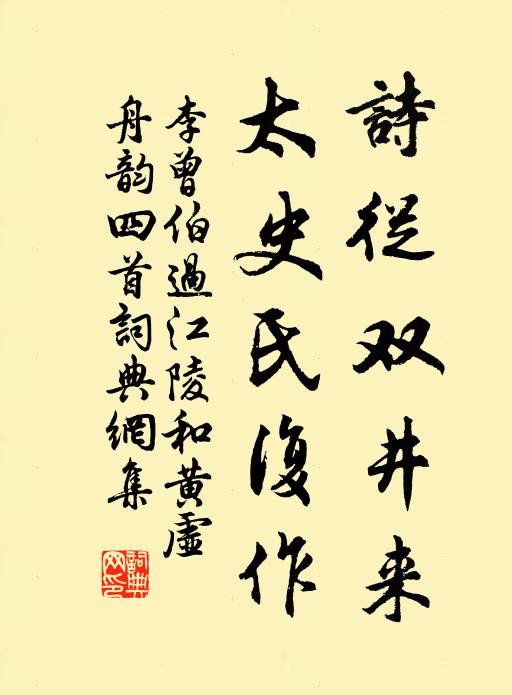 詩從双井来
太史氏復作
李曾伯過江陵和黄虛
舟韵四首詞典網集
詞典
网印